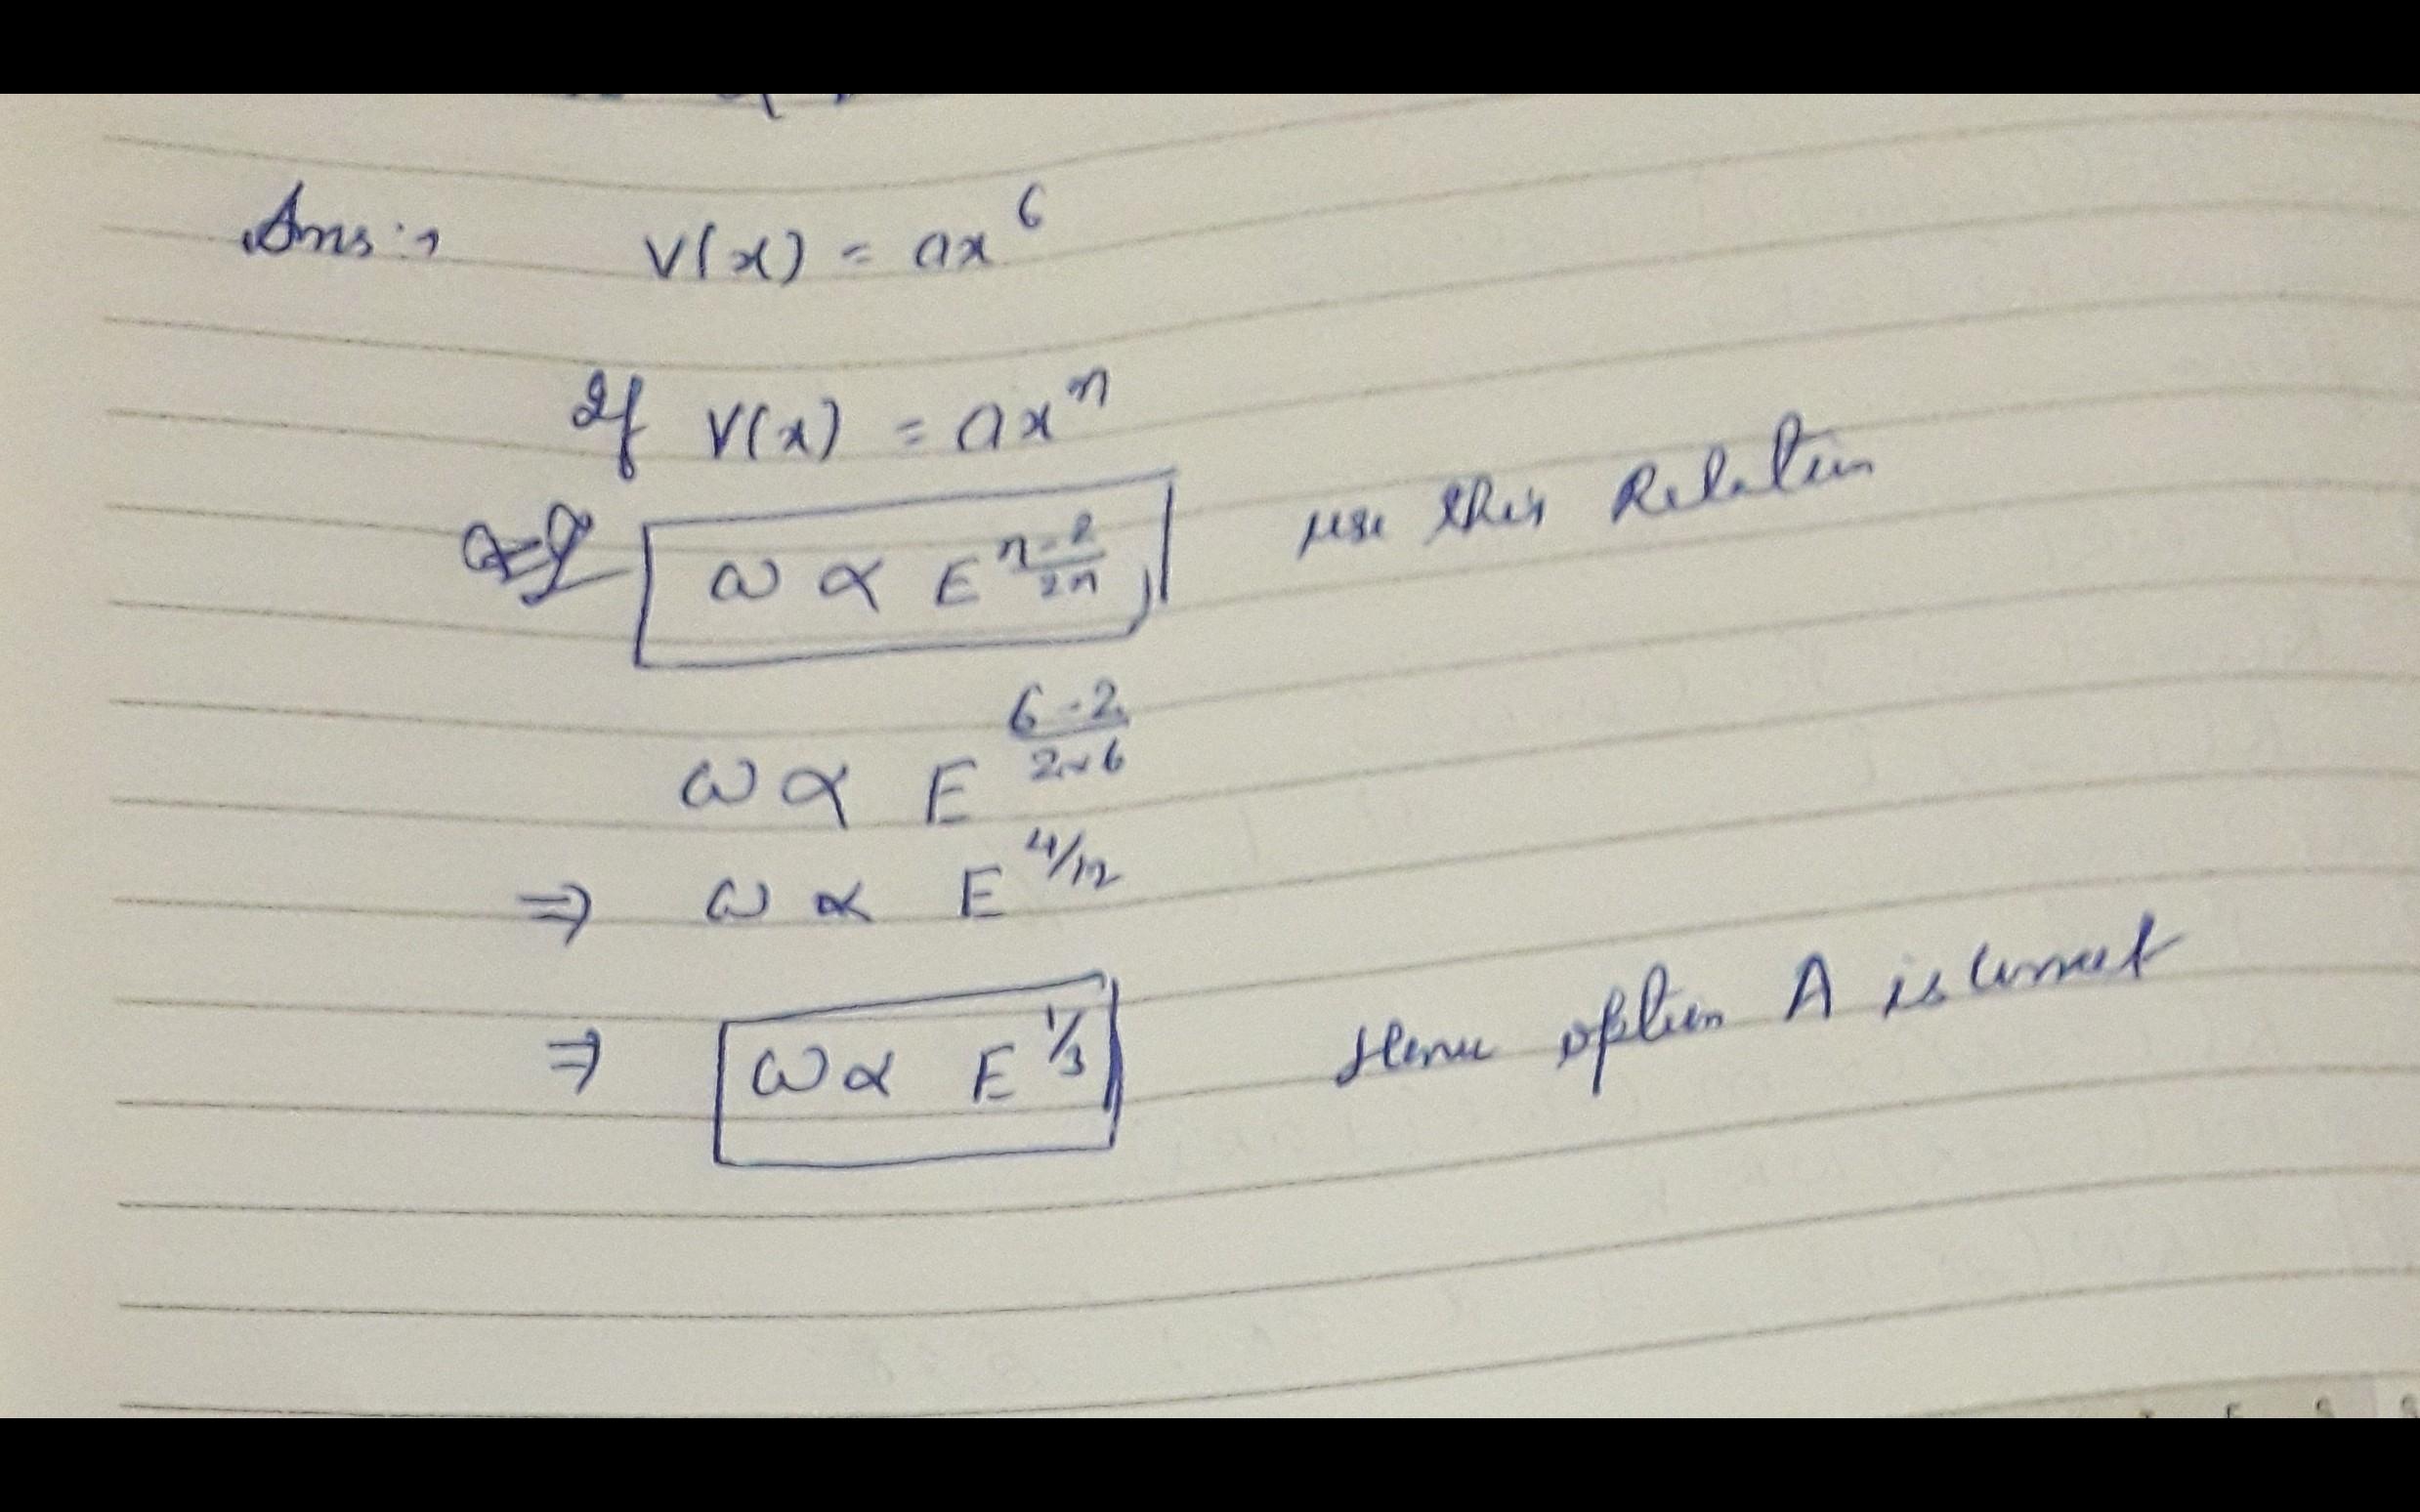 Ans:→ V(x) = ax⁶
If V(x) = axⁿ
ω ∝ E^{(n-2)/2n} use this Relation
ω ∝ E^{(6-2)/(2×6)}
⇒ ω ∝ E^{4/12}
⇒ ω ∝ E^{1/3} Hence option A is correct